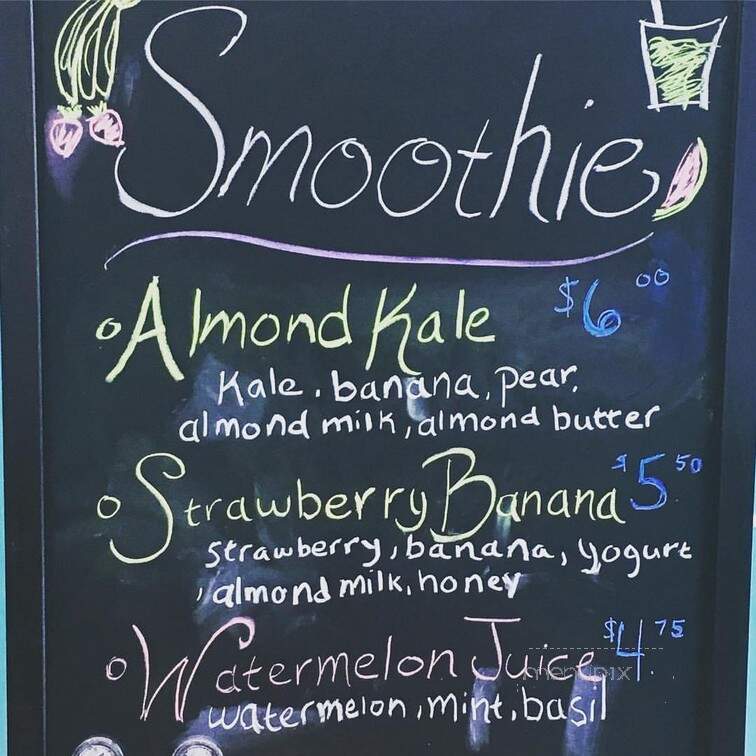 Smoothie
Almond Kale $6.00
Kale, banana, pear,
almond milk, almond butter
Strawberry Banana $5.50
strawberry, banana, yogurt
, almond milk, honey
Watermelon Juice $4.75
menupix
watermelon, mint, basil